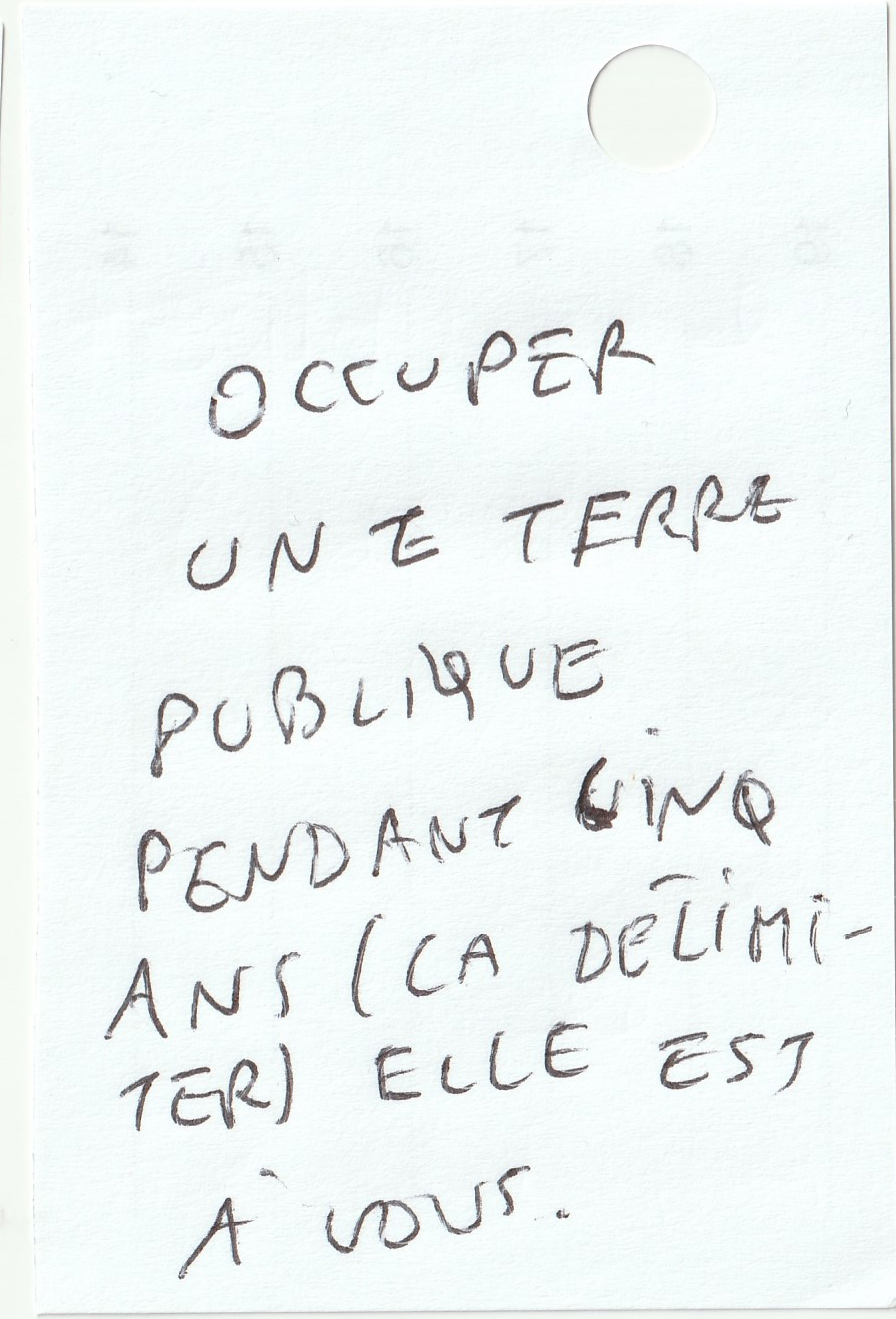 OCCUPER
UNE TERRE
PUBLIQUE
PENDANT CINQ
ANS (CA DÉLIMI-
TER) ELLE EST
À VOUS.